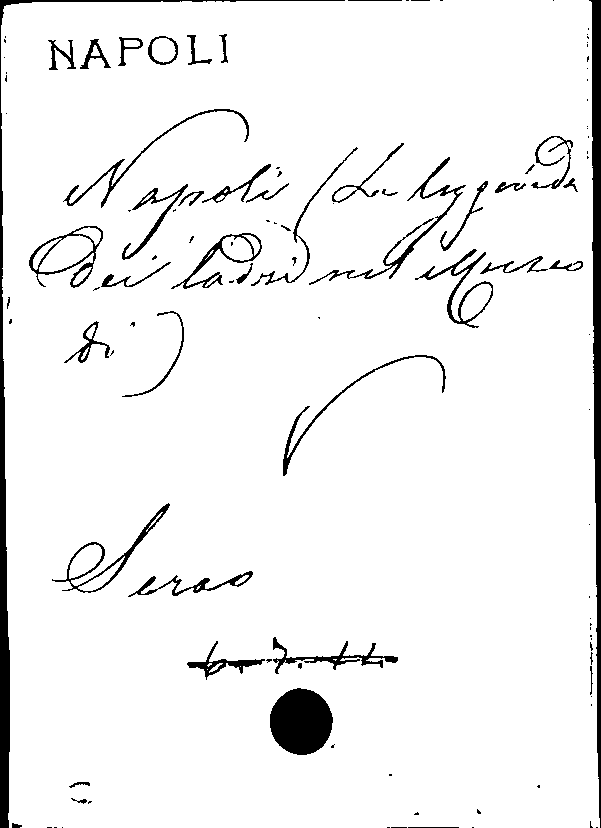 NAPOLI
Napoli (La leggenda
dei ladri nel Museo
di)
V
Serao
6.7.11.